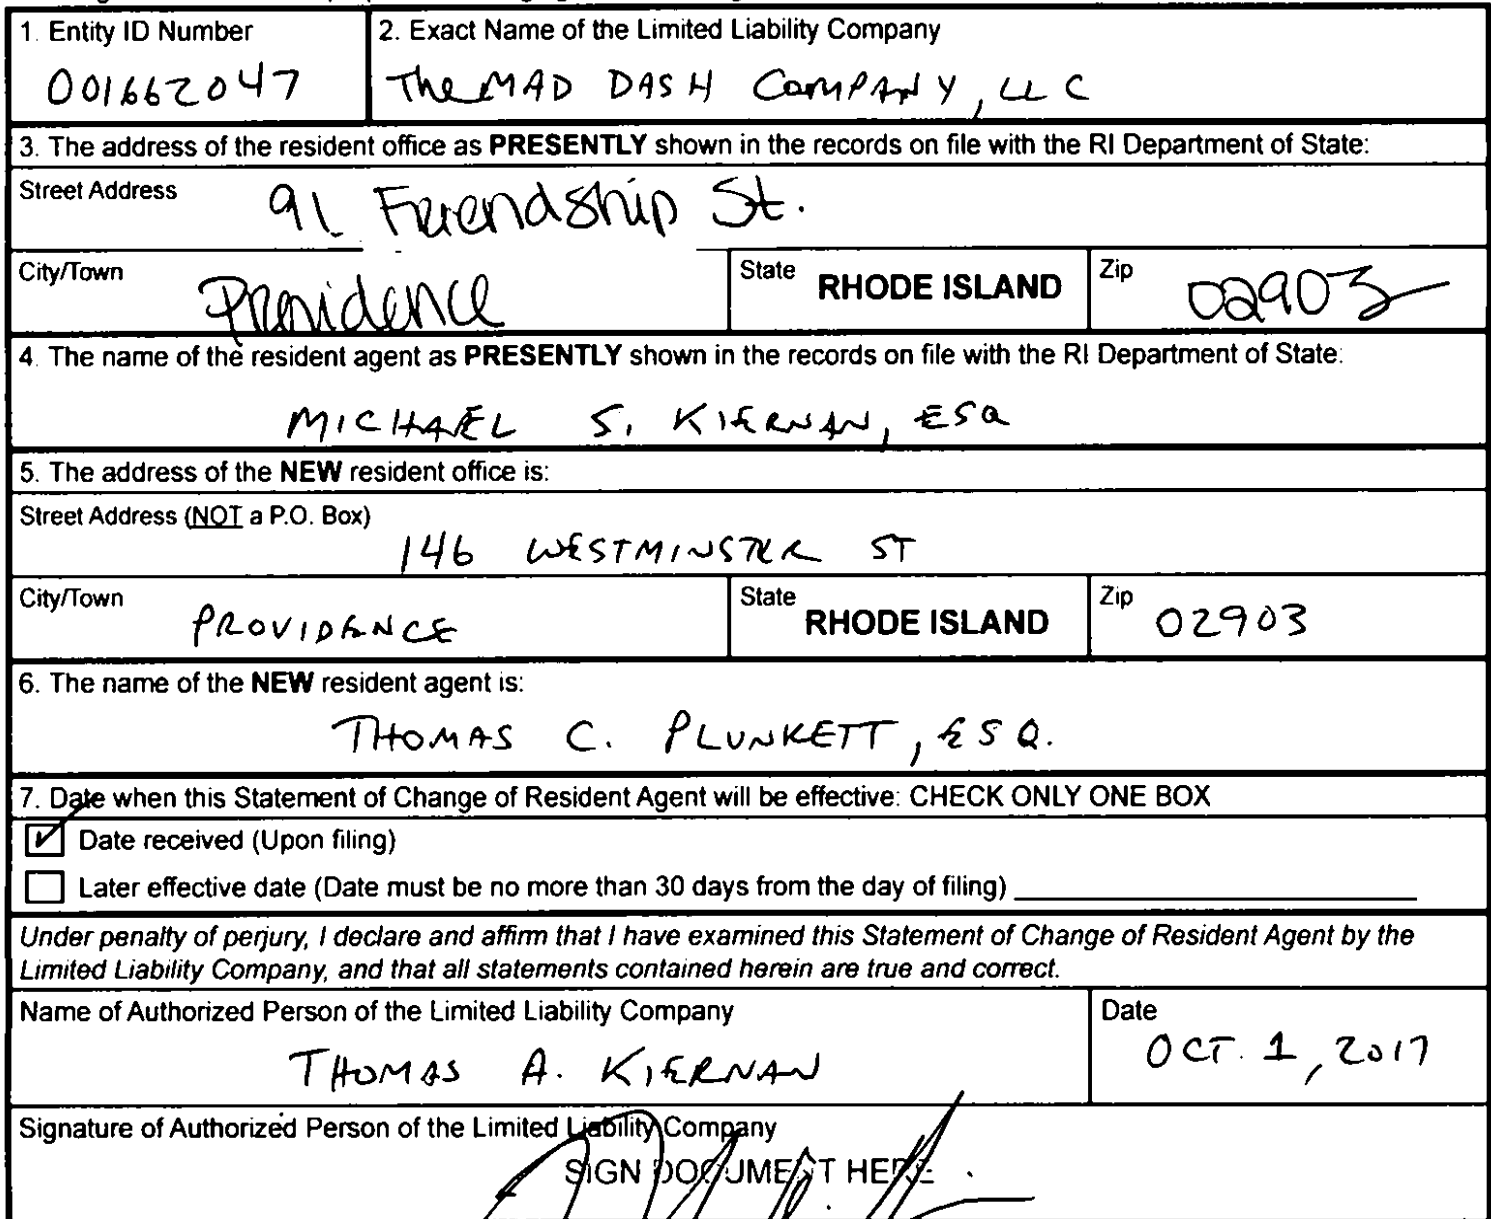 1. Entity ID Number
001662047
2. Exact Name of the Limited Liability Company
The MAD DASH COMPANY, LLC
3. The address of the resident office as PRESENTLY shown in the records on file with the RI Department of State:
Street Address
91 Friendship St.
City/Town
Providence
State RHODE ISLAND
Zip
02903
4. The name of the resident agent as PRESENTLY shown in the records on file with the RI Department of State:
MICHAEL S. KIERNAN, ESQ
5. The address of the NEW resident office is:
Street Address (NOT a P.O. Box)
146 WESTMINSTER ST
City/Town
PROVIDENCE
State
RHODE ISLAND
Zip
02903
6. The name of the NEW resident agent is:
THOMAS C. PLUNKETT, ESQ.
7. Date when this Statement of Change of Resident Agent will be effective: CHECK ONLY ONE BOX
Date received (Upon filing)
Later effective date (Date must be no more than 30 days from the day of filing)
Under penalty of perjury, I declare and affirm that I have examined this Statement of Change of Resident Agent by the
Limited Liability Company, and that all statements contained herein are true and correct.
Name of Authorized Person of the Limited Liability Company
THOMAS A. KIERNAN
Date
OCT. 1, 2017
Signature of Authorized Person of the Limited Liability Company
SIGN DOCUMENT HERE